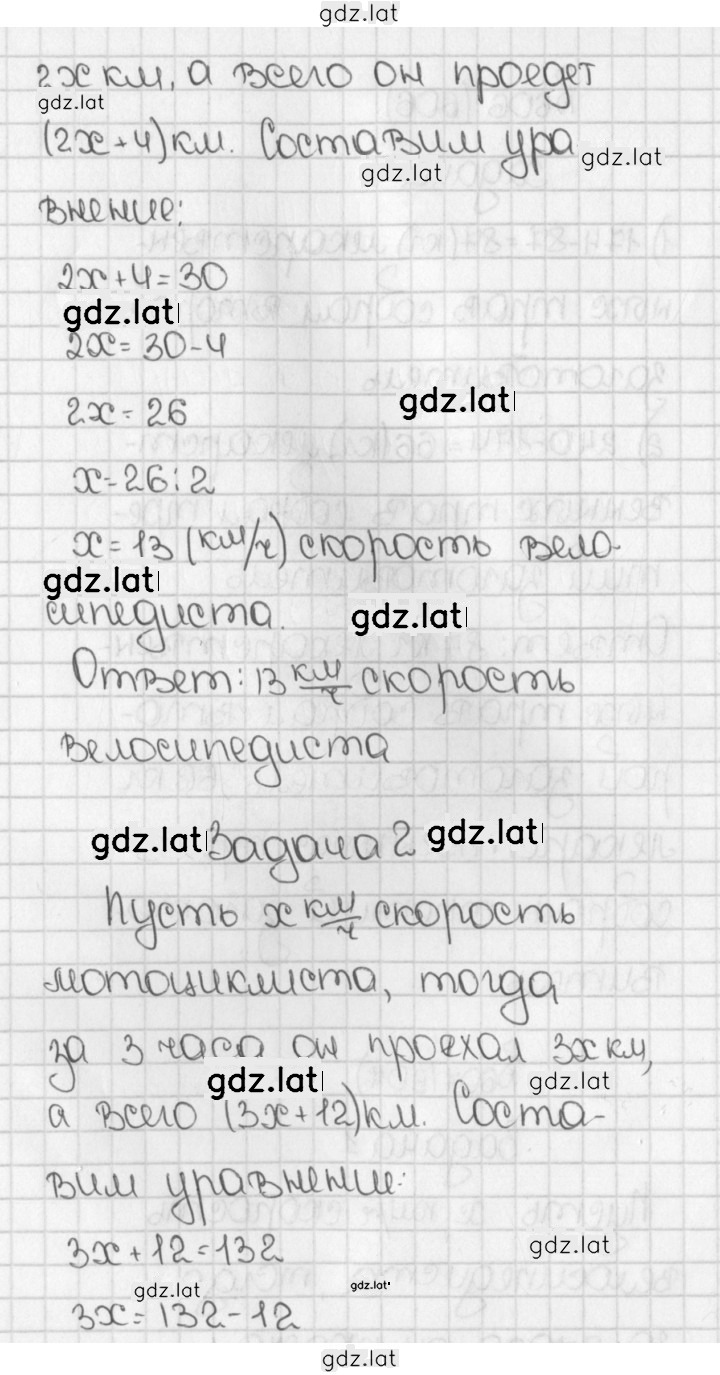 gdz.lat
2x км, а всего он проедет
gdz.lat
(2x+4) км. Составим ура
gdz.lat
gdz.lat
внение:
2x+4=30
gdz.lat
2x=30-4
2x=26
gdz.lat
x=26:2
x=13 (км/ч) скорость вело-
gdz.lat
сипедиста.
gdz.lat
Ответ: 13 км/ч скорость
велосипедиста
gdz.lat Задача 2 gdz.lat
Пусть x км/ч скорость
мотоциклиста, тогда
за 3 часа он проехал 3x км,
gdz.lat
gdz.lat
а всего (3x+12) км. Соста-
вим уравнение:
3x+12=132
gdz.lat
gdz.lat
gdz.lat
3x=132-12
gdz.lat